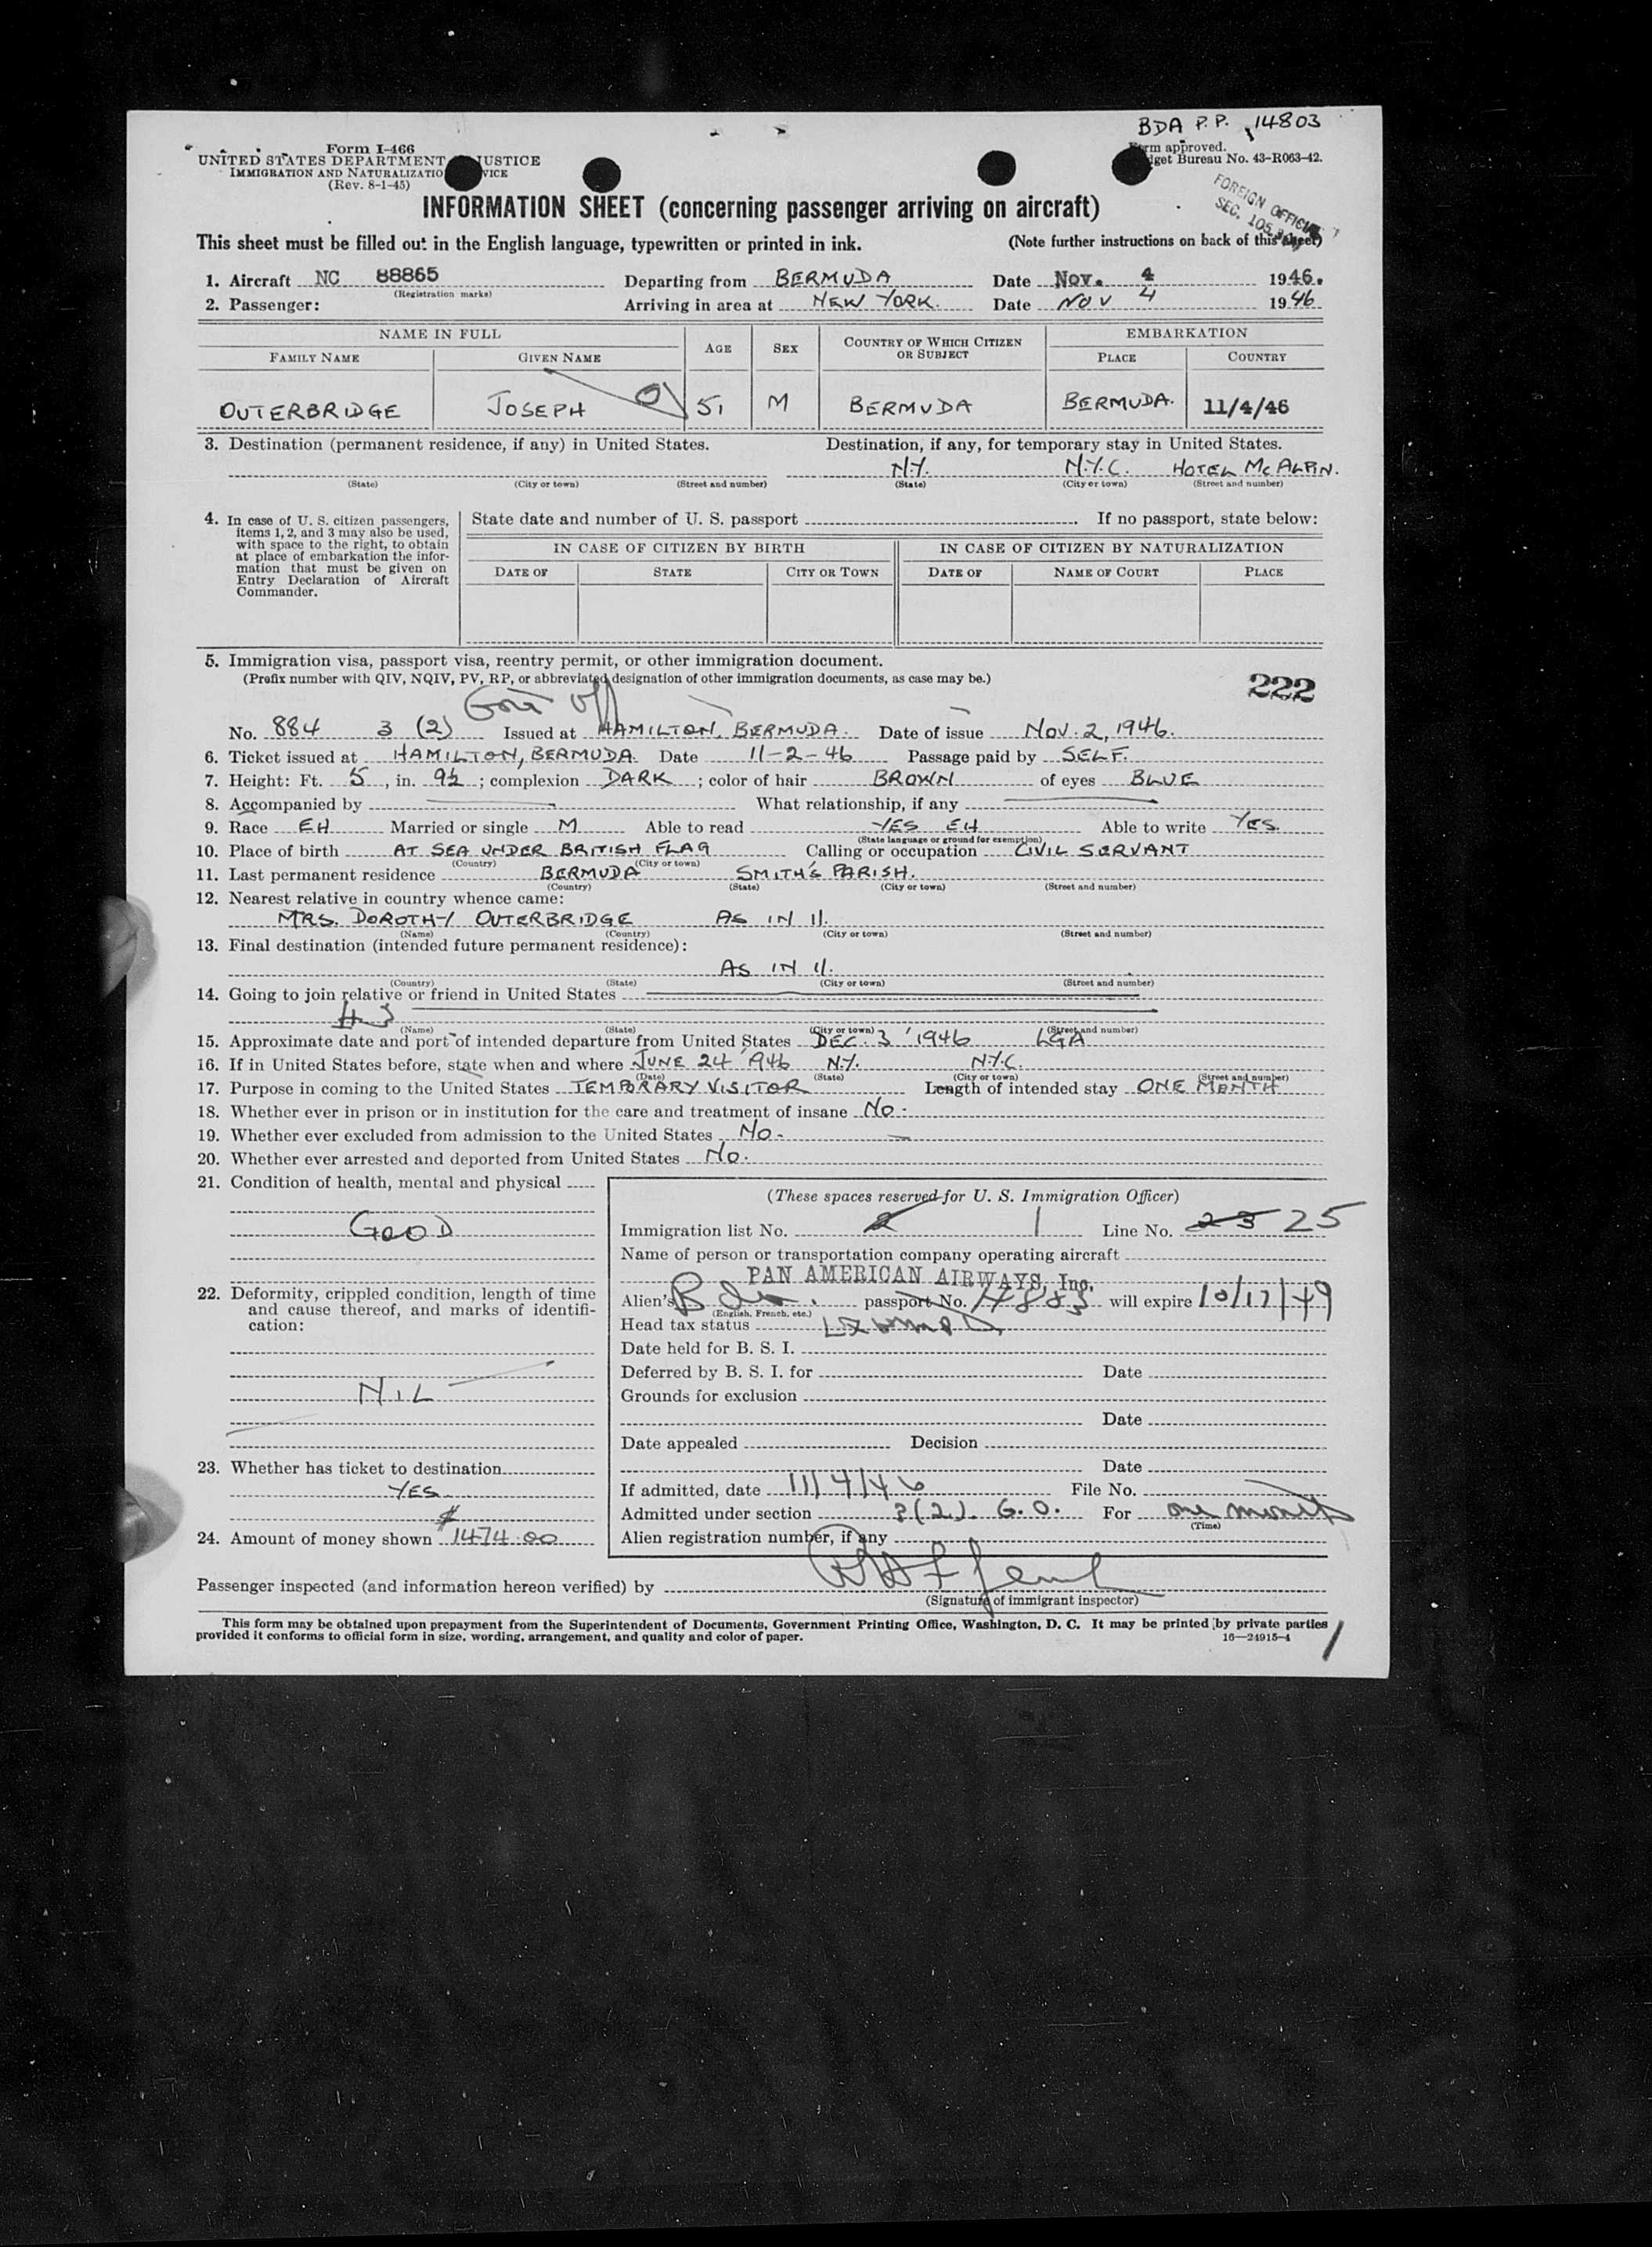 BDA P.P. 14803
Form I-466
UNITED STATES DEPARTMENT JUSTICE
IMMIGRATION AND NATURALIZATIO VICE
(Rev. 8-1-45)
rm approved.
get Bureau No. 43-R063-42.
FOREIGN OFFICIAL
SEC. 105.3
INFORMATION SHEET (concerning passenger arriving on aircraft)
This sheet must be filled out in the English language, typewritten or printed in ink. (Note further instructions on back of this sheet)
1. Aircraft NC 88865 Departing from BERMUDA Date Nov. 4 1946.
(Registration marks)
2. Passenger: Arriving in area at NEW YORK. Date NOV 4 1946
NAME IN FULL AGE SEX COUNTRY OF WHICH CITIZEN OR SUBJECT EMBARKATION
FAMILY NAME GIVEN NAME PLACE COUNTRY
OUTERBRIDGE JOSEPH 51 M BERMUDA BERMUDA. 11/4/46
3. Destination (permanent residence, if any) in United States. Destination, if any, for temporary stay in United States.
N.Y. N.Y.C. HOTEL McALPIN.
(State) (City or town) (Street and number) (State) (City or town) (Street and number)
4. In case of U. S. citizen passengers, items 1, 2, and 3 may also be used, with space to the right, to obtain at place of embarkation the information that must be given on Entry Declaration of Aircraft Commander.
State date and number of U. S. passport If no passport, state below:
IN CASE OF CITIZEN BY BIRTH IN CASE OF CITIZEN BY NATURALIZATION
DATE OF STATE CITY OR TOWN DATE OF NAME OF COURT PLACE
5. Immigration visa, passport visa, reentry permit, or other immigration document.
(Prefix number with QIV, NQIV, PV, RP, or abbreviated designation of other immigration documents, as case may be.)
222
Govt Off
No. 884 3 (2) Issued at HAMILTON, BERMUDA. Date of issue Nov. 2, 1946.
6. Ticket issued at HAMILTON, BERMUDA. Date 11-2-46 Passage paid by SELF.
7. Height: Ft. 5, in. 9½; complexion DARK; color of hair BROWN of eyes BLUE
8. Accompanied by What relationship, if any
9. Race EH Married or single M Able to read YES EH Able to write YES.
(State language or ground for exemption)
10. Place of birth AT SEA UNDER BRITISH FLAG Calling or occupation CIVIL SERVANT
(Country) (City or town)
11. Last permanent residence BERMUDA SMITH'S PARISH.
(Country) (State) (City or town) (Street and number)
12. Nearest relative in country whence came:
MRS. DOROTHY OUTERBRIDGE AS IN 11.
(Name) (Country) (City or town) (Street and number)
13. Final destination (intended future permanent residence):
AS IN 11.
(Country) (State) (City or town) (Street and number)
14. Going to join relative or friend in United States
(Name) (State) (City or town) (Street and number)
15. Approximate date and port of intended departure from United States DEC. 3 1946 LGA
16. If in United States before, state when and where JUNE 24 1946 N.Y. N.Y.C.
(Date) (State) (City or town) (Street and number)
17. Purpose in coming to the United States TEMPORARY VISITOR Length of intended stay ONE MONTH
18. Whether ever in prison or in institution for the care and treatment of insane No.
19. Whether ever excluded from admission to the United States No.
20. Whether ever arrested and deported from United States No.
21. Condition of health, mental and physical
GOOD
22. Deformity, crippled condition, length of time and cause thereof, and marks of identification:
NIL
23. Whether has ticket to destination
YES
24. Amount of money shown $1474.00
(These spaces reserved for U. S. Immigration Officer)
Immigration list No. 2 1 Line No. 23 25
Name of person or transportation company operating aircraft
PAN AMERICAN AIRWAYS, Inc.
Alien's passport No. will expire 10/17/49
(English, French, etc.)
Head tax status
Date held for B. S. I.
Deferred by B. S. I. for Date
Grounds for exclusion
Date
Date appealed Decision
Date
If admitted, date 11/4/46 File No.
Admitted under section 3(2). G.O. For one month
(Time)
Alien registration number, if any
Passenger inspected (and information hereon verified) by
(Signature of immigrant inspector)
This form may be obtained upon prepayment from the Superintendent of Documents, Government Printing Office, Washington, D. C. It may be printed by private parties
provided it conforms to official form in size, wording, arrangement, and quality and color of paper. 16—24915-4